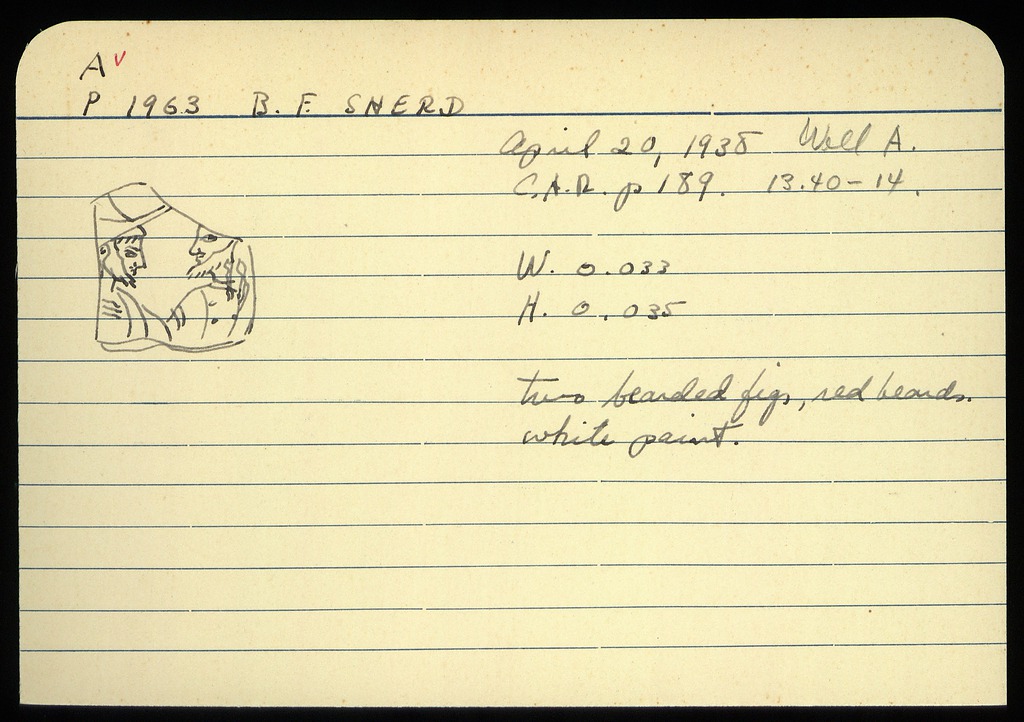 A ✓
P 1963 B. F. SHERD
April 20, 1938 Well A.
C.A.R. p 189. 13.40-14.
W. 0.033
H. 0.035
two bearded figs, red beards.
white paint.